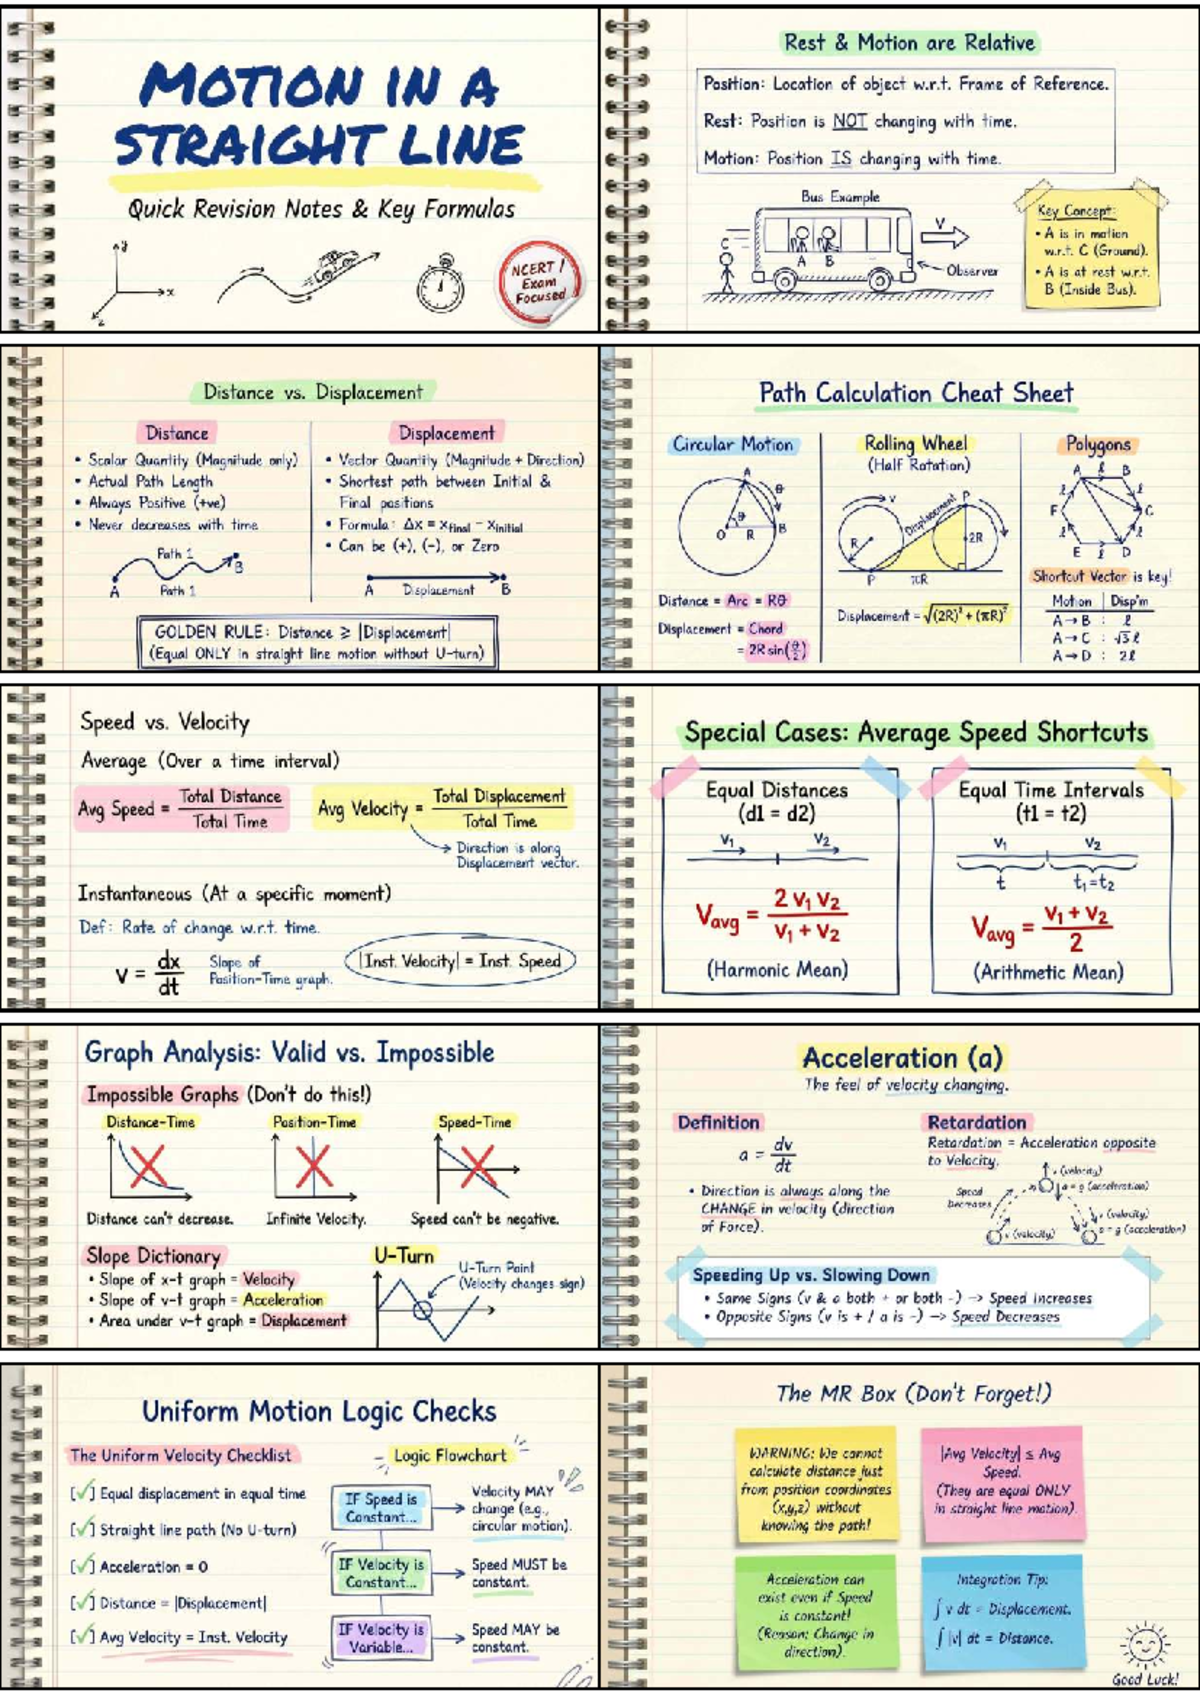 MOTION IN A
STRAIGHT LINE
Quick Revision Notes & Key Formulas
y
x
z
NCERT /
Exam
Focused
Rest & Motion are Relative
Position: Location of object w.r.t. Frame of Reference.
Rest: Position is NOT changing with time.
Motion: Position IS changing with time.
Bus Example
C
A B
V
Observer
Key Concept:
• A is in motion
w.r.t. C (Ground).
• A is at rest w.r.t.
B (Inside Bus).
Distance vs. Displacement
Distance
• Scalar Quantity (Magnitude only)
• Actual Path Length
• Always Positive (+ve)
• Never decreases with time
Path 1
A
B
Path 1
Displacement
• Vector Quantity (Magnitude + Direction)
• Shortest path between Initial &
Final positions
• Formula: Δx = xfinal - xinitial
• Can be (+), (-), or Zero
A Displacement B
GOLDEN RULE: Distance ≥ |Displacement|
(Equal ONLY in straight line motion without U-turn)
Path Calculation Cheat Sheet
Circular Motion
A
θ
θ
O R B
Distance = Arc = Rθ
Displacement = Chord
= 2R sin(θ/2)
Rolling Wheel
(Half Rotation)
v
P
Displacement
R
2R
P πR
Displacement = √(2R)² + (πR)²
Polygons
A ℓ B
ℓ ℓ
F C
ℓ ℓ
E ℓ D
Shortcut Vector is key!
Motion | Disp'm
A→B : ℓ
A→C : √3 ℓ
A→D : 2ℓ
Speed vs. Velocity
Average (Over a time interval)
Avg Speed = Total Distance / Total Time
Avg Velocity = Total Displacement / Total Time
Direction is along
Displacement vector.
Instantaneous (At a specific moment)
Def: Rate of change w.r.t. time.
v = dx/dt
Slope of
Position-Time graph.
|Inst. Velocity| = Inst. Speed
Special Cases: Average Speed Shortcuts
Equal Distances
(d1 = d2)
V1 V2
Vavg = 2 V1 V2 / V1 + V2
(Harmonic Mean)
Equal Time Intervals
(t1 = t2)
V1 V2
t t1=t2
Vavg = V1 + V2 / 2
(Arithmetic Mean)
Graph Analysis: Valid vs. Impossible
Impossible Graphs (Don't do this!)
Distance-Time
Position-Time
Speed-Time
Distance can't decrease.
Infinite Velocity.
Speed can't be negative.
Slope Dictionary
• Slope of x-t graph = Velocity
• Slope of v-t graph = Acceleration
• Area under v-t graph = Displacement
U-Turn
U-Turn Point
(Velocity changes sign)
Acceleration (a)
The feel of velocity changing.
Definition
a = dv/dt
• Direction is always along the
CHANGE in velocity (direction
of Force).
Retardation
Retardation = Acceleration opposite
to Velocity.
v (velocity)
a = g (acceleration)
Speed
Decreases
v (velocity)
v (velocity)
a = g (acceleration)
Speeding Up vs. Slowing Down
• Same Signs (v & a both + or both -) -> Speed Increases
• Opposite Signs (v is + / a is -) -> Speed Decreases
Uniform Motion Logic Checks
The Uniform Velocity Checklist
[✓] Equal displacement in equal time
[✓] Straight line path (No U-turn)
[✓] Acceleration = 0
[✓] Distance = |Displacement|
[✓] Avg Velocity = Inst. Velocity
Logic Flowchart
IF Speed is
Constant...
Velocity MAY
change (e.g.,
circular motion).
IF Velocity is
Constant...
Speed MUST be
constant.
IF Velocity is
Variable...
Speed MAY be
constant.
The MR Box (Don't Forget!)
WARNING: We cannot
calculate distance just
from position coordinates
(x,y,z) without
knowing the path!
|Avg Velocity| ≤ Avg
Speed.
(They are equal ONLY
in straight line motion).
Acceleration can
exist even if Speed
is constant!
(Reason: Change in
direction).
Integration Tip:
∫ v dt = Displacement.
∫ |v| dt = Distance.
Good Luck!